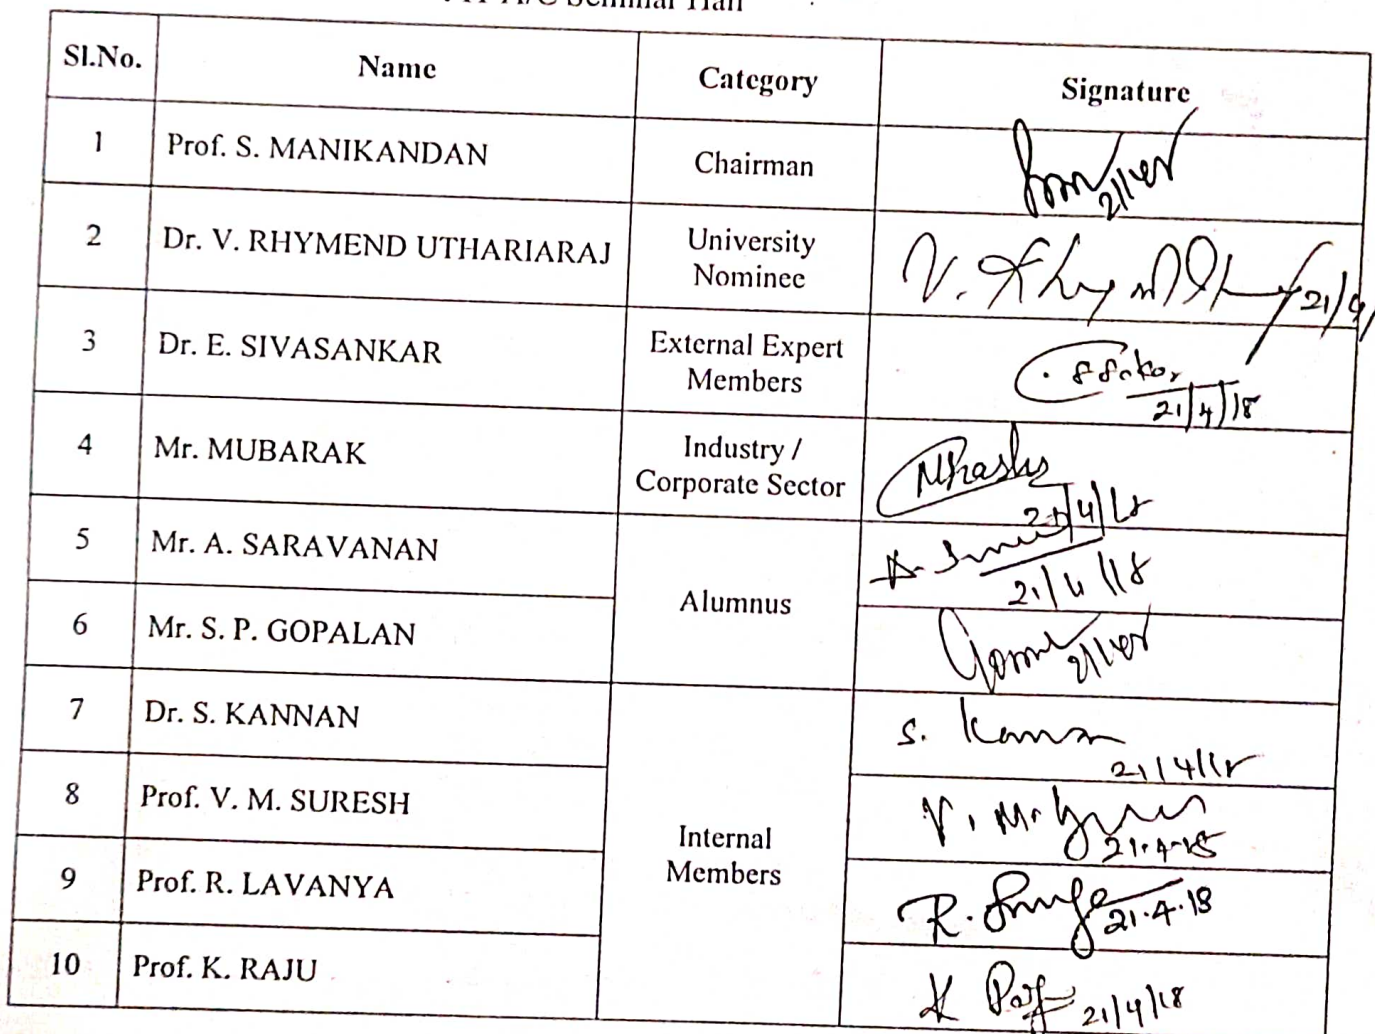 A/C Seminar Hall
Sl.No. Name Category Signature
1 Prof. S. MANIKANDAN Chairman
2 Dr. V. RHYMEND UTHARIARAJ University
Nominee V. 21/4/
3 Dr. E. SIVASANKAR External Expert
Members 21/4/18
4 Mr. MUBARAK Industry /
Corporate Sector 21/4/18
5 Mr. A. SARAVANAN Alumnus A. 21/4/18
6 Mr. S. P. GOPALAN
7 Dr. S. KANNAN Internal
Members S. Kannan 21/4/18
8 Prof. V. M. SURESH V. M. 21.4.18
9 Prof. R. LAVANYA R. 21.4.18
10 Prof. K. RAJU K 21/4/18